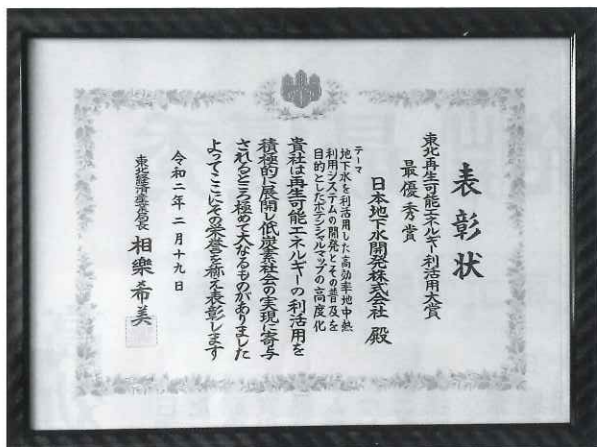 表彰状
東北再生可能エネルギー利活用大賞
最優秀賞
日本地下水開発株式会社 殿
テーマ
地下水を利活用した高効率地中熱
利用システムの開発とその普及を
目的としたポテンシャルマップの高度化
貴社は再生可能エネルギーの利活用を
積極的に展開し低炭素社会の実現に寄与
されるところ極めて大なるものがありました
よってここにその栄誉を称え表彰します
令和二年二月十九日
東北経済産業局長 相樂希美